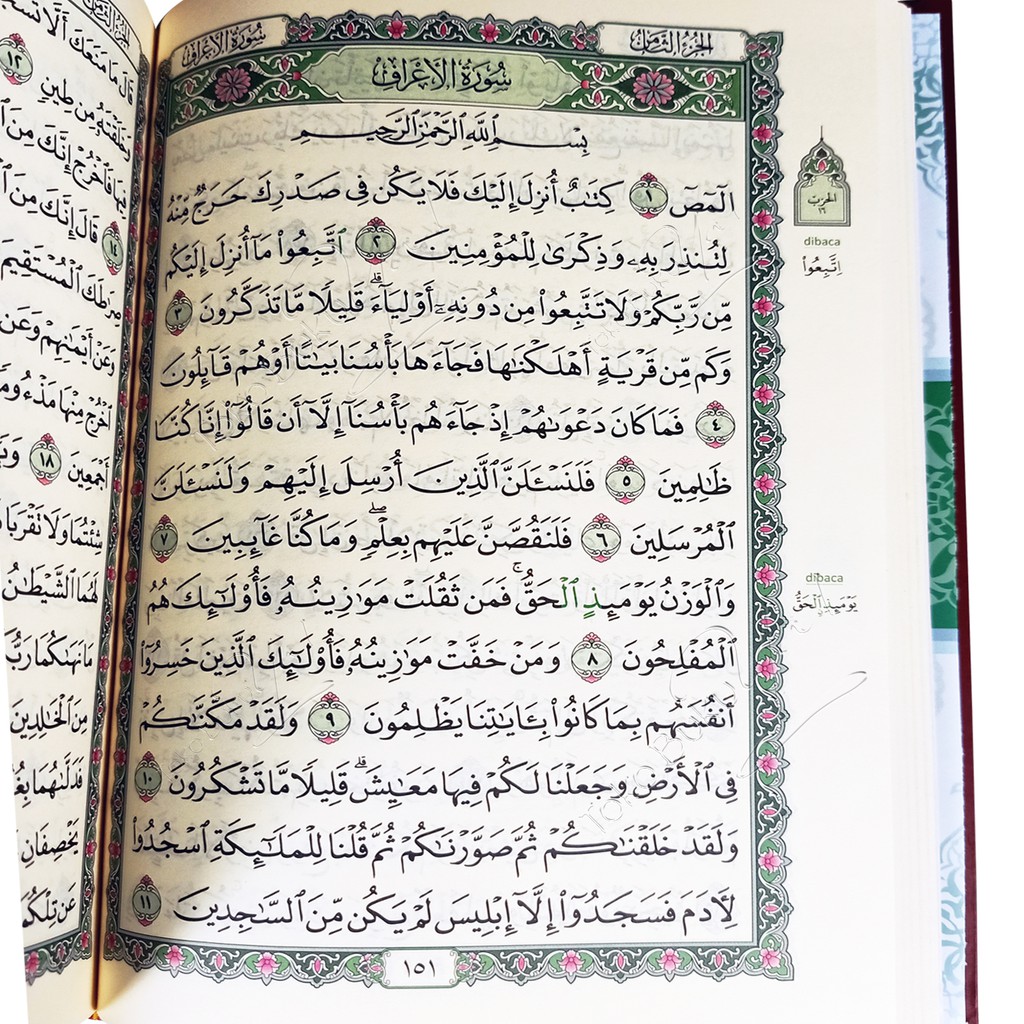 الجزء الثامن
سورة الأعراف
سُورَةُ الْأَعْرَافِ
بِسْمِ ٱللَّهِ ٱلرَّحْمَٰنِ ٱلرَّحِيمِ
الٓمٓصٓ ١ كِتَٰبٌ أُنزِلَ إِلَيْكَ فَلَا يَكُن فِى صَدْرِكَ حَرَجٌ مِّنْهُ
لِتُنذِرَ بِهِۦ وَذِكْرَىٰ لِلْمُؤْمِنِينَ ٢ ٱتَّبِعُوا۟ مَآ أُنزِلَ إِلَيْكُم
مِّن رَّبِّكُمْ وَلَا تَتَّبِعُوا۟ مِن دُونِهِۦٓ أَوْلِيَآءَ ۗ قَلِيلًا مَّا تَذَكَّرُونَ ٣
وَكَم مِّن قَرْيَةٍ أَهْلَكْنَٰهَا فَجَآءَهَا بَأْسُنَا بَيَٰتًا أَوْ هُمْ قَآئِلُونَ
٤ فَمَا كَانَ دَعْوَىٰهُمْ إِذْ جَآءَهُم بَأْسُنَآ إِلَّآ أَن قَالُوٓا۟ إِنَّا كُنَّا
ظَٰلِمِينَ ٥ فَلَنَسْـَٔلَنَّ ٱلَّذِينَ أُرْسِلَ إِلَيْهِمْ وَلَنَسْـَٔلَنَّ
ٱلْمُرْسَلِينَ ٦ فَلَنَقُصَّنَّ عَلَيْهِم بِعِلْمٍ ۖ وَمَا كُنَّا غَآئِبِينَ ٧
وَٱلْوَزْنُ يَوْمَئِذٍ ٱلْحَقُّ ۚ فَمَن ثَقُلَتْ مَوَٰزِينُهُۥ فَأُو۟لَٰٓئِكَ هُمُ
ٱلْمُفْلِحُونَ ٨ وَمَنْ خَفَّتْ مَوَٰزِينُهُۥ فَأُو۟لَٰٓئِكَ ٱلَّذِينَ خَسِرُوٓا۟
أَنفُسَهُم بِمَا كَانُوا۟ بِـَٔايَٰتِنَا يَظْلِمُونَ ٩ وَلَقَدْ مَكَّنَّٰكُمْ
فِى ٱلْأَرْضِ وَجَعَلْنَا لَكُمْ فِيهَا مَعَٰيِشَ ۗ قَلِيلًا مَّا تَشْكُرُونَ ١٠
وَلَقَدْ خَلَقْنَٰكُمْ ثُمَّ صَوَّرْنَٰكُمْ ثُمَّ قُلْنَا لِلْمَلَٰٓئِكَةِ ٱسْجُدُوا۟
لِـَٔادَمَ فَسَجَدُوٓا۟ إِلَّآ إِبْلِيسَ لَمْ يَكُن مِّنَ ٱلسَّٰجِدِينَ ١١
١٥١
الحزب
١٦
dibaca
اِتَّبِعُوا۟
dibaca
يَوْمَئِذِنِ الْحَقُّ
قَالَ مَا مَنَعَكَ أَلَّا
وَخَلَقْتَهُۥ مِن طِينٍ ١٢
فِيهَا فَٱخْرُجْ إِنَّكَ مِنَ
١٤ قَالَ إِنَّكَ مِنَ
صِرَٰطَكَ ٱلْمُسْتَقِيمَ
وَعَنْ أَيْمَٰنِهِمْ وَعَن
ٱخْرُجْ مِنْهَا
أَجْمَعِينَ ١٨
شِئْتُمَا وَلَا تَقْرَبَا
لَهُمَا ٱلشَّيْطَٰنُ
مَا نَهَىٰكُمَا
مِنَ ٱلْخَٰلِدِينَ
فَدَلَّىٰهُمَا
يَخْصِفَانِ
عَن